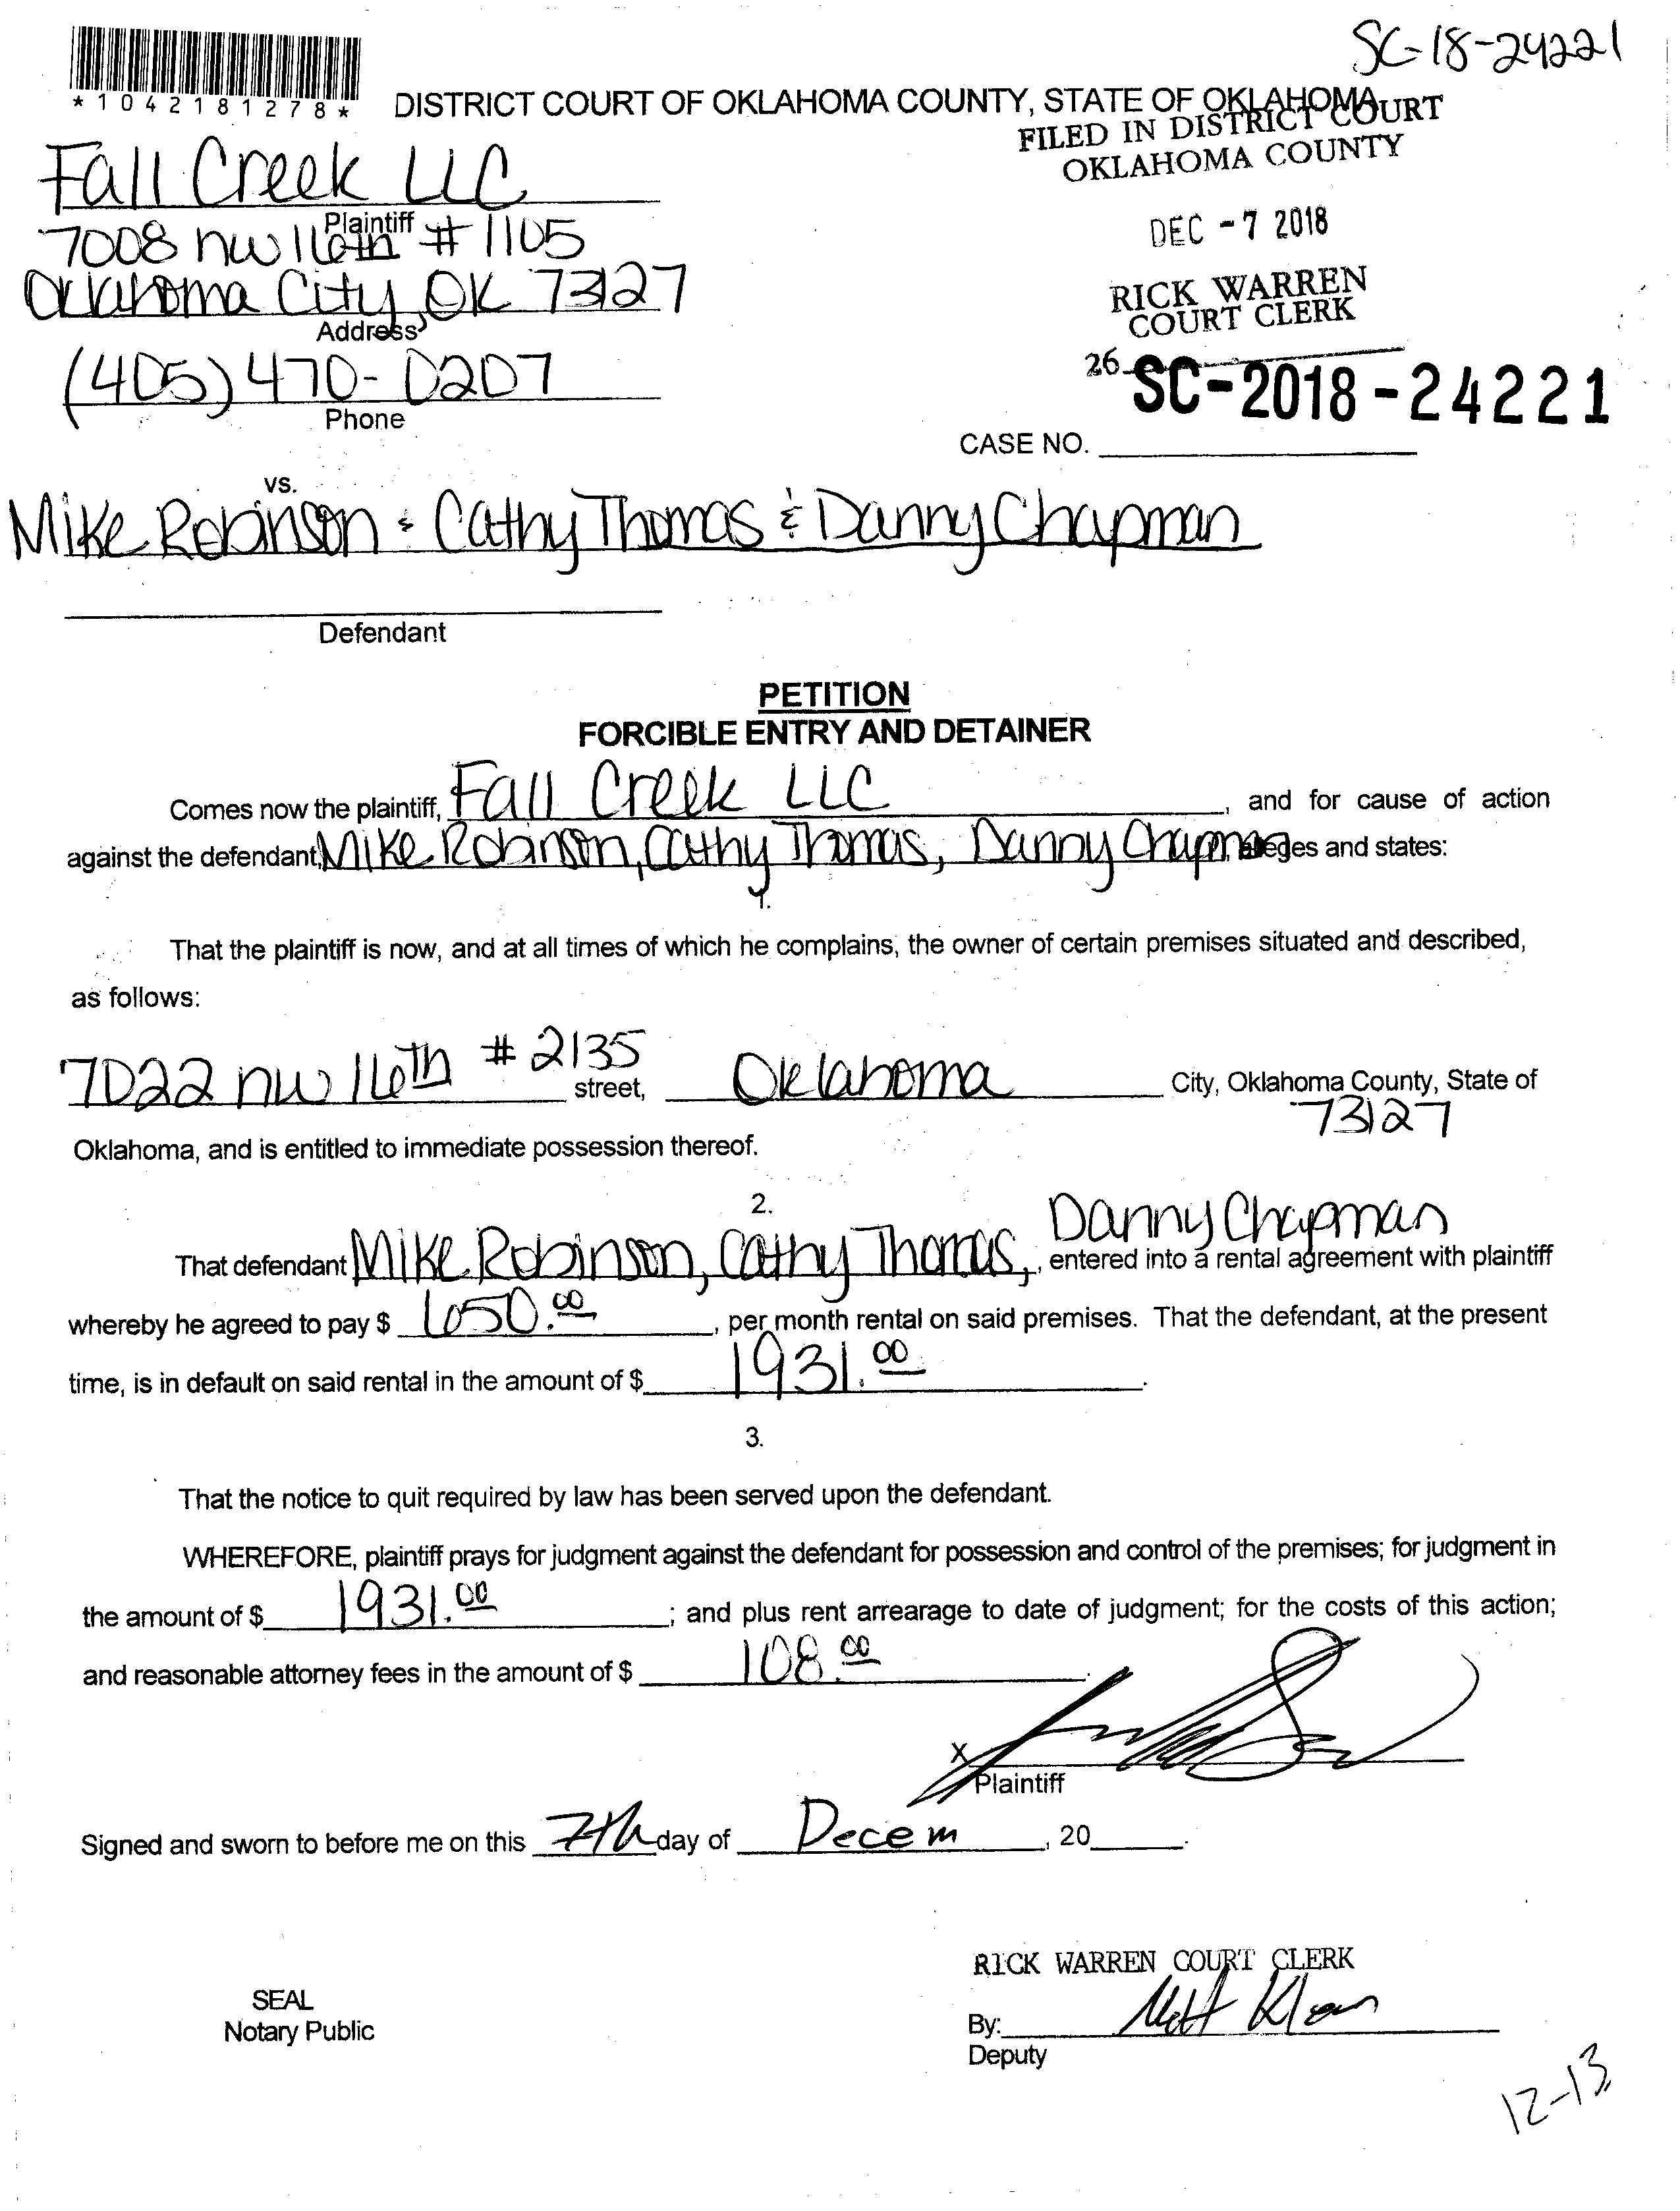 SC-18-24221
*1042181278*
DISTRICT COURT OF OKLAHOMA COUNTY, STATE OF OKLAHOMA
FILED IN DISTRICT COURT
OKLAHOMA COUNTY
Fall Creek LLC
Plaintiff
7008 nw 16th # 1105
DEC -7 2018
Oklahoma City, OK 73127
Address
RICK WARREN
COURT CLERK
(405) 470-0207
Phone
26
SC-2018-24221
CASE NO.
vs.
Mike Robinson & Cathy Thomas & Danny Chapman
Defendant
PETITION
FORCIBLE ENTRY AND DETAINER
Comes now the plaintiff, Fall Creek LLC, and for cause of action
against the defendant, Mike Robinson, Cathy Thomas, Danny Chapman alleges and states:
1.
That the plaintiff is now, and at all times of which he complains, the owner of certain premises situated and described,
as follows:
7022 nw 16th # 2135 street, Oklahoma City, Oklahoma County, State of
73127
Oklahoma, and is entitled to immediate possession thereof.
2.
Danny Chapman
That defendant Mike Robinson, Cathy Thomas, , entered into a rental agreement with plaintiff
whereby he agreed to pay $ 650.00, per month rental on said premises. That the defendant, at the present
time, is in default on said rental in the amount of $ 1931.00.
3.
That the notice to quit required by law has been served upon the defendant.
WHEREFORE, plaintiff prays for judgment against the defendant for possession and control of the premises; for judgment in
the amount of $ 1931.00; and plus rent arrearage to date of judgment; for the costs of this action;
and reasonable attorney fees in the amount of $ 108.00.
X
Plaintiff
Signed and sworn to before me on this 7th day of Decem, 20.
RICK WARREN COURT CLERK
SEAL
Notary Public
By:
Deputy
12-13